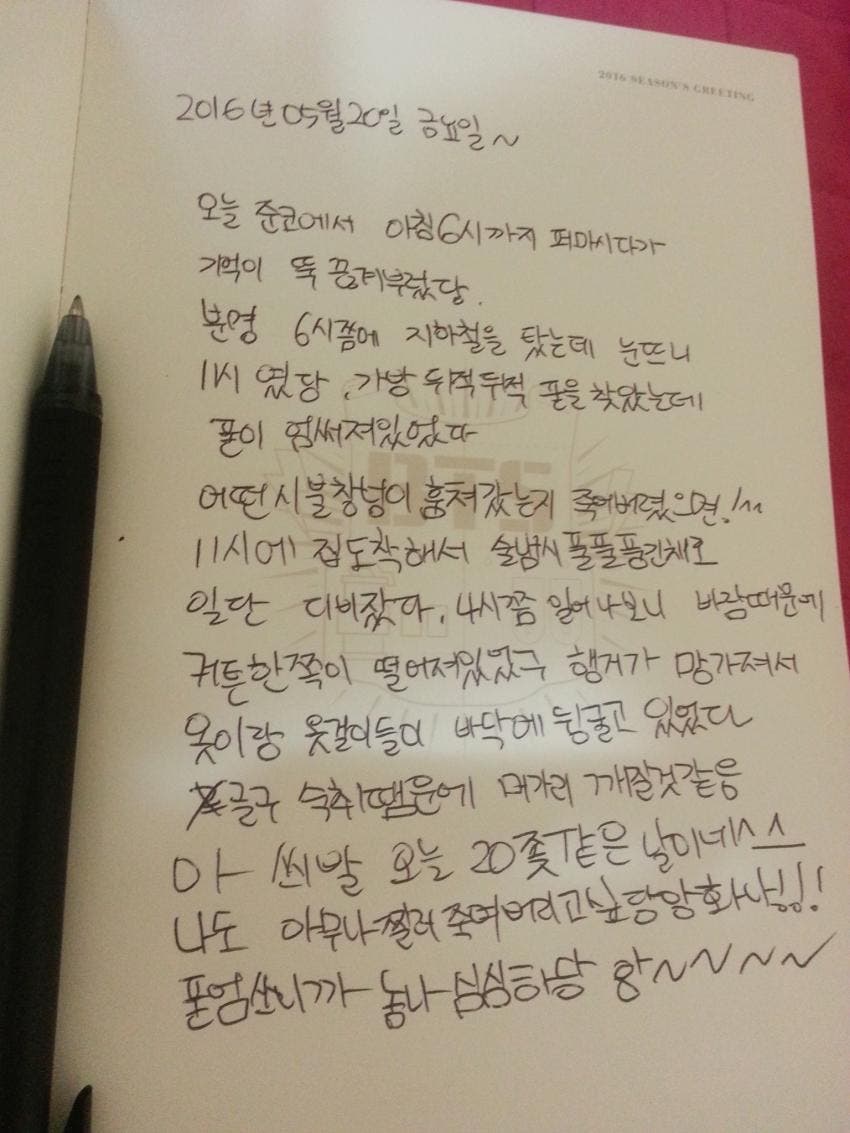 2016 SEASON'S GREETING
2016년 05월 20일 금요일~
오늘 준코에서 아침 6시까지 퍼마시다가
기억이 뚝 끊겨부렀당.
분명 6시쯤에 지하철을 탔는데 눈뜨니
11시 였당. 가방 뒤적뒤적 폰을 찾았는데
폰이 엄써져있었다
어떤 시불창넘이 훔쳐갔는지 죽여버렸으면!^^
11시에 집도착해서 술냄시 풀풀풍긴채로
일단 디비잤다. 4시쯤 일어나보니 바람때문에
커튼한쪽이 떨어져있었구 행거가 망가져서
옷이랑 옷걸이들이 바닥에 뒹굴고 있었다
글구 숙취땜운에 머가리 깨질것같음
아 씌발 오늘 20좆같은 날이네^^
나도 아무나 찔러죽여버리고싶당 왕화사!!
폰엄쓰니까 놈나 심심하당 항~~~~